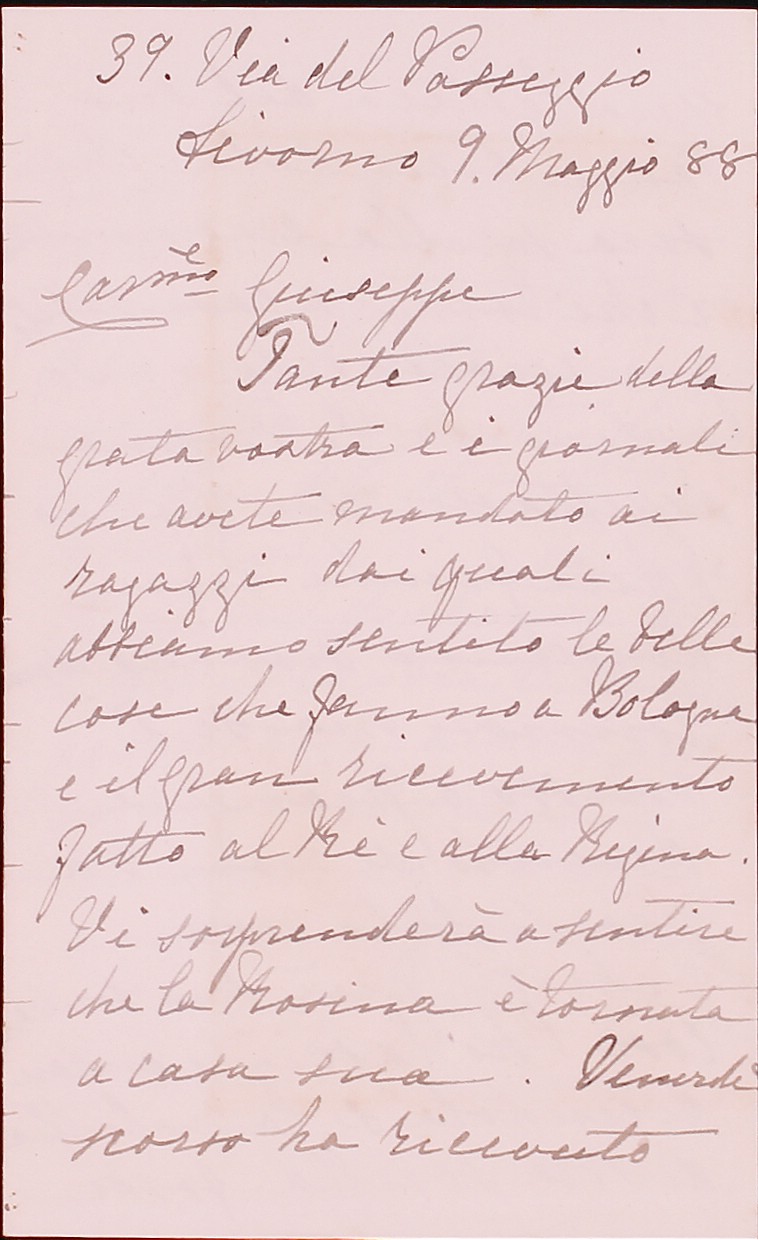 39. Via del Passeggio
Livorno 9. Maggio 88
Carmo Giuseppe
Tante grazie della
grata vostra e i giornali
che avete mandato ai
ragazzi dai quali
abbiamo sentito le belle
cose che fanno a Bologna
e il gran ricevemento
fatto al Rè e alla Regina.
Vi soprenderà a sentire
che la Rosina è tornata
a casa sua. Venerdì
scorso ha ricevuto